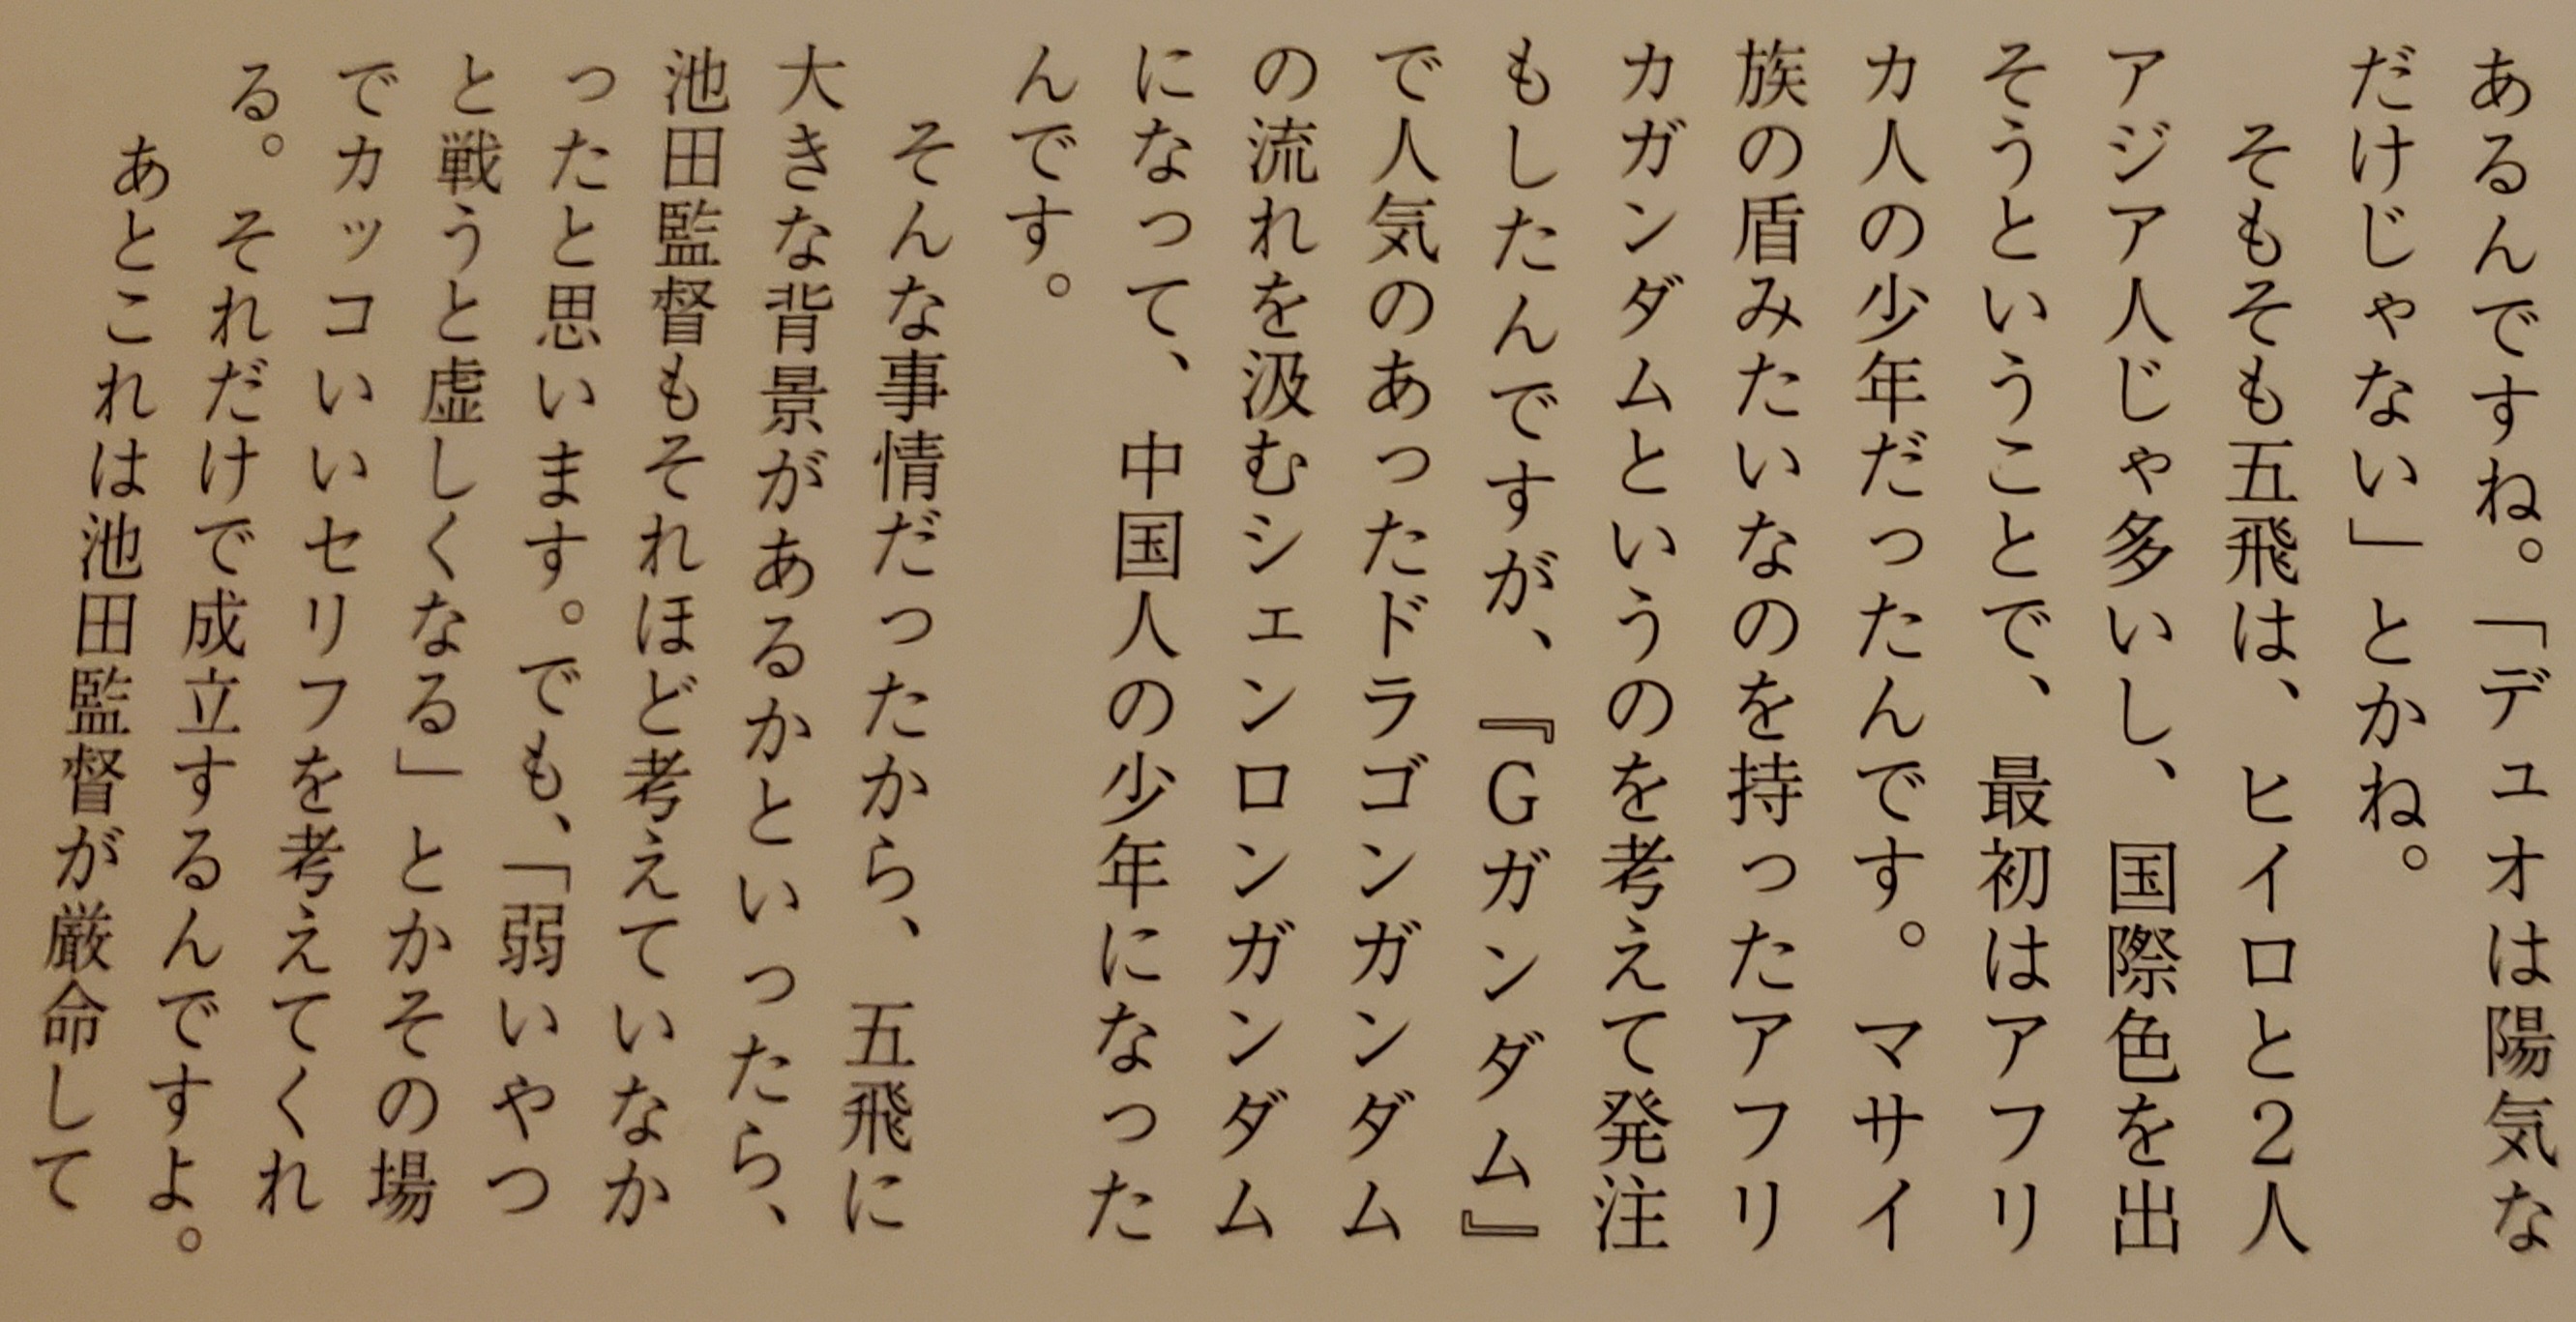 あるんですね。「デュオは陽気な
だけじゃない」とかね。
そもそも五飛は、ヒイロと2人
アジア人じゃ多いし、国際色を出
そうということで、最初はアフリ
カ人の少年だったんです。マサイ
族の盾みたいなのを持ったアフリ
カガンダムというのを考えて発注
もしたんですが、『Gガンダム』
で人気のあったドラゴンガンダム
の流れを汲むシェンロンガンダム
になって、中国人の少年になった
んです。
そんな事情だったから、五飛に
大きな背景があるかといったら、
池田監督もそれほど考えていなか
ったと思います。でも、「弱いやつ
と戦うと虚しくなる」とかその場
でカッコいいセリフを考えてくれ
る。それだけで成立するんですよ。
あとこれは池田監督が厳命して